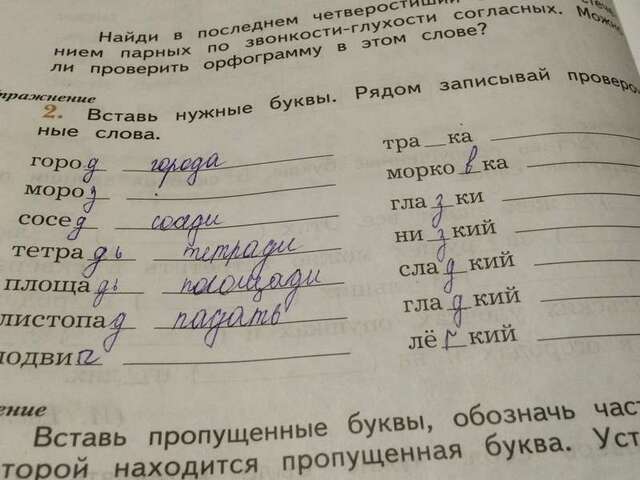 Найди в последнем четверостишии
нием парных по звонкости-глухости согласных. Можн
ли проверить орфограмму в этом слове?
пражнение
2. Вставь нужные буквы. Рядом записывай проверо
ные слова.
город города
мороз
сосед
тетрадь тетради
площадь
листопад падать
подвиг
тра_ка
морковка
глазки
низкий
сладкий
гладкий
лёгкий
ение
Вставь пропущенные буквы, обозначь част
торой находится пропущенная буква. Уст